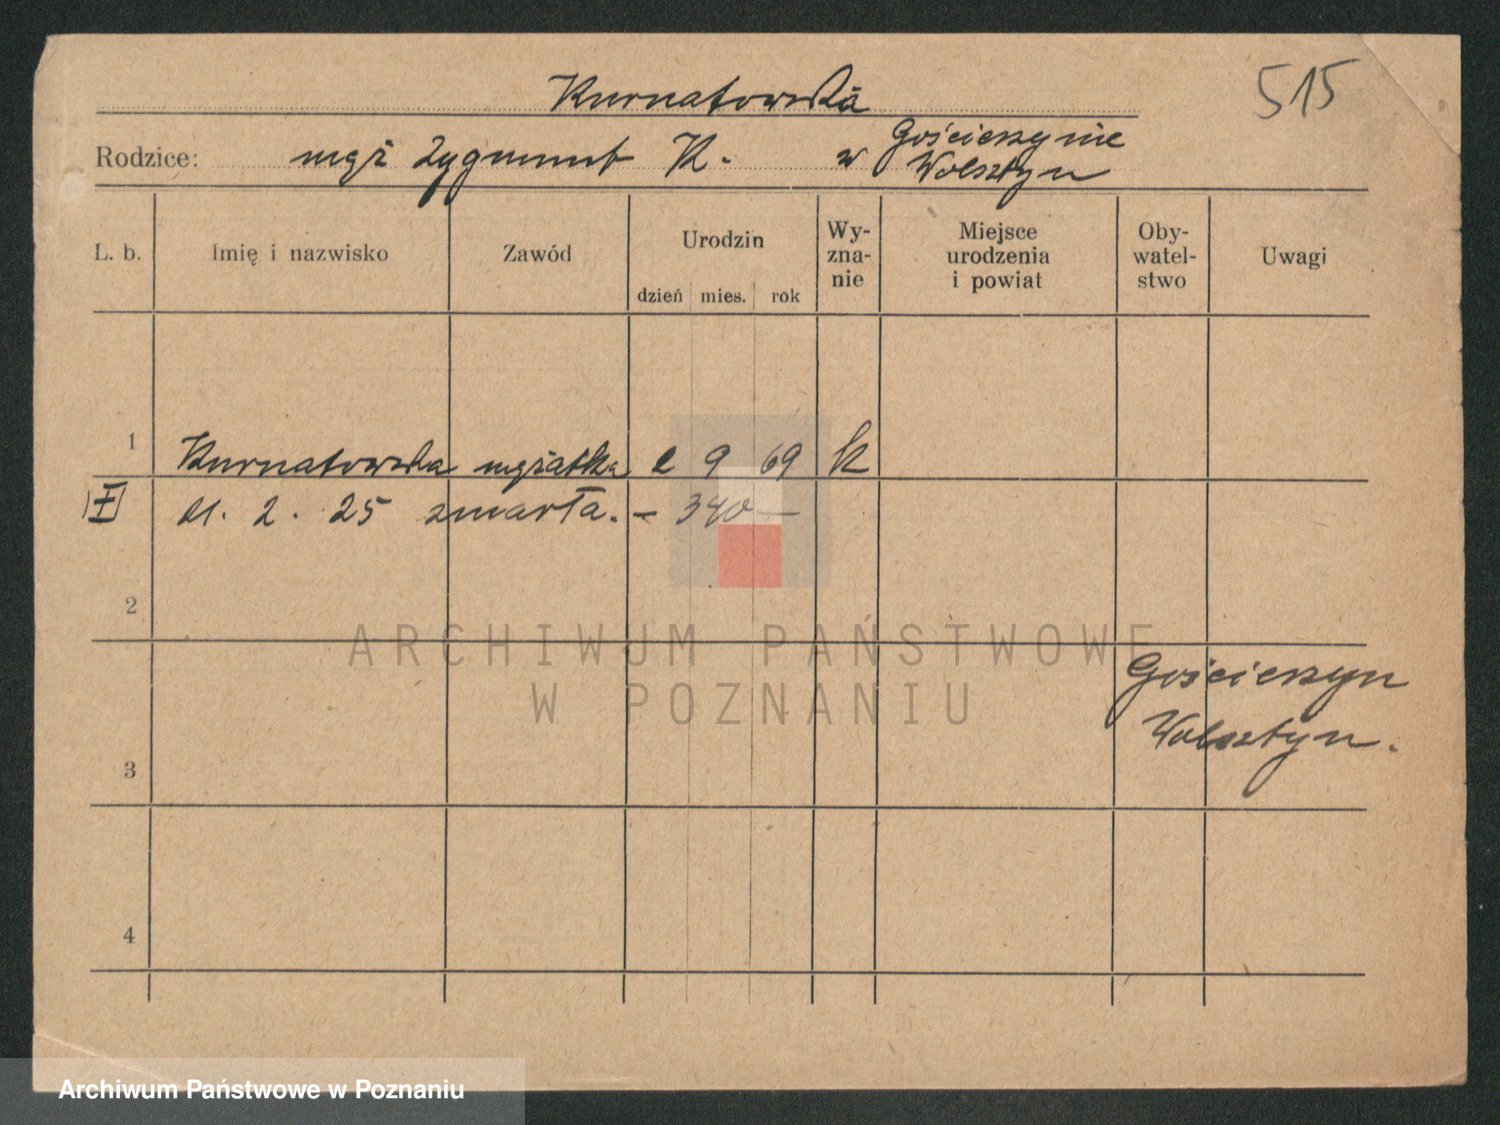 Kurnatowska
515
Rodzice: mąż Zygmunt K. w Gościeszynie
Wolsztyn
L. b. Imię i nazwisko Zawód Urodzin Wy-
zna-
nie Miejsce
urodzenia
i powiat Oby-
watel-
stwo Uwagi
dzień mies. rok
1 Kurnatowska mężatka 2 9 69 k
21. 2. 25 zmarła. – 340 –
2
ARCHIWUM PAŃSTWOWE
W POZNANIU
Gościeszyn
Wolsztyn.
3
4
Archiwum Państwowe w Poznaniu